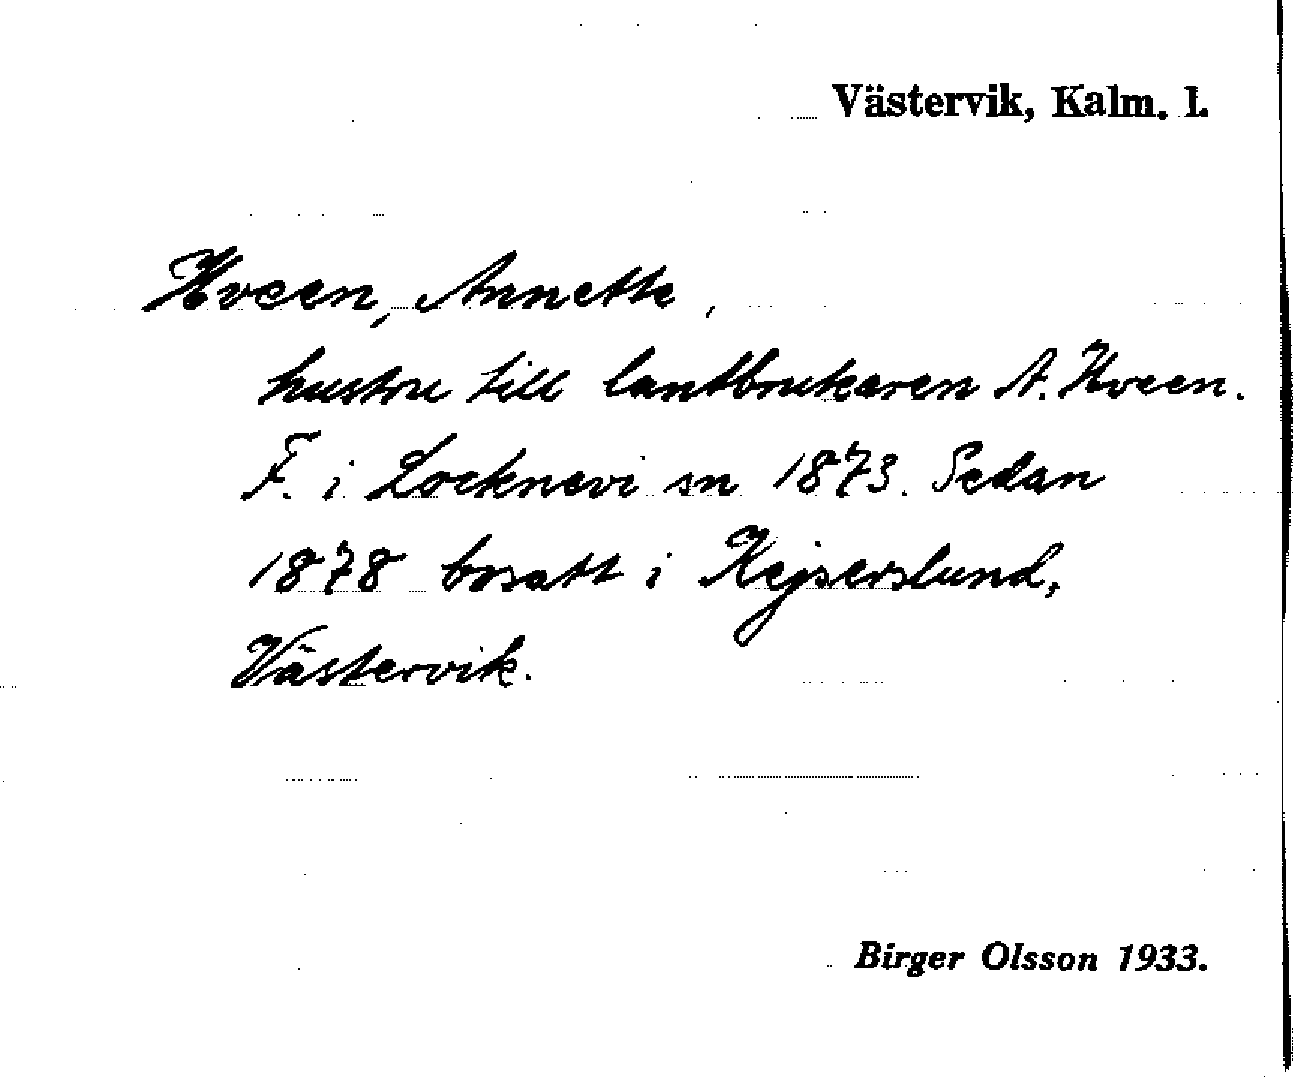 Västervik, Kalm. l.
Hveen, Annette,
hustru till lantbrukaren A. Hveen.
F. i Locknevi sn 1873. Sedan
1878 bosatt i Kejserslund,
Västervik.
Birger Olsson 1933.